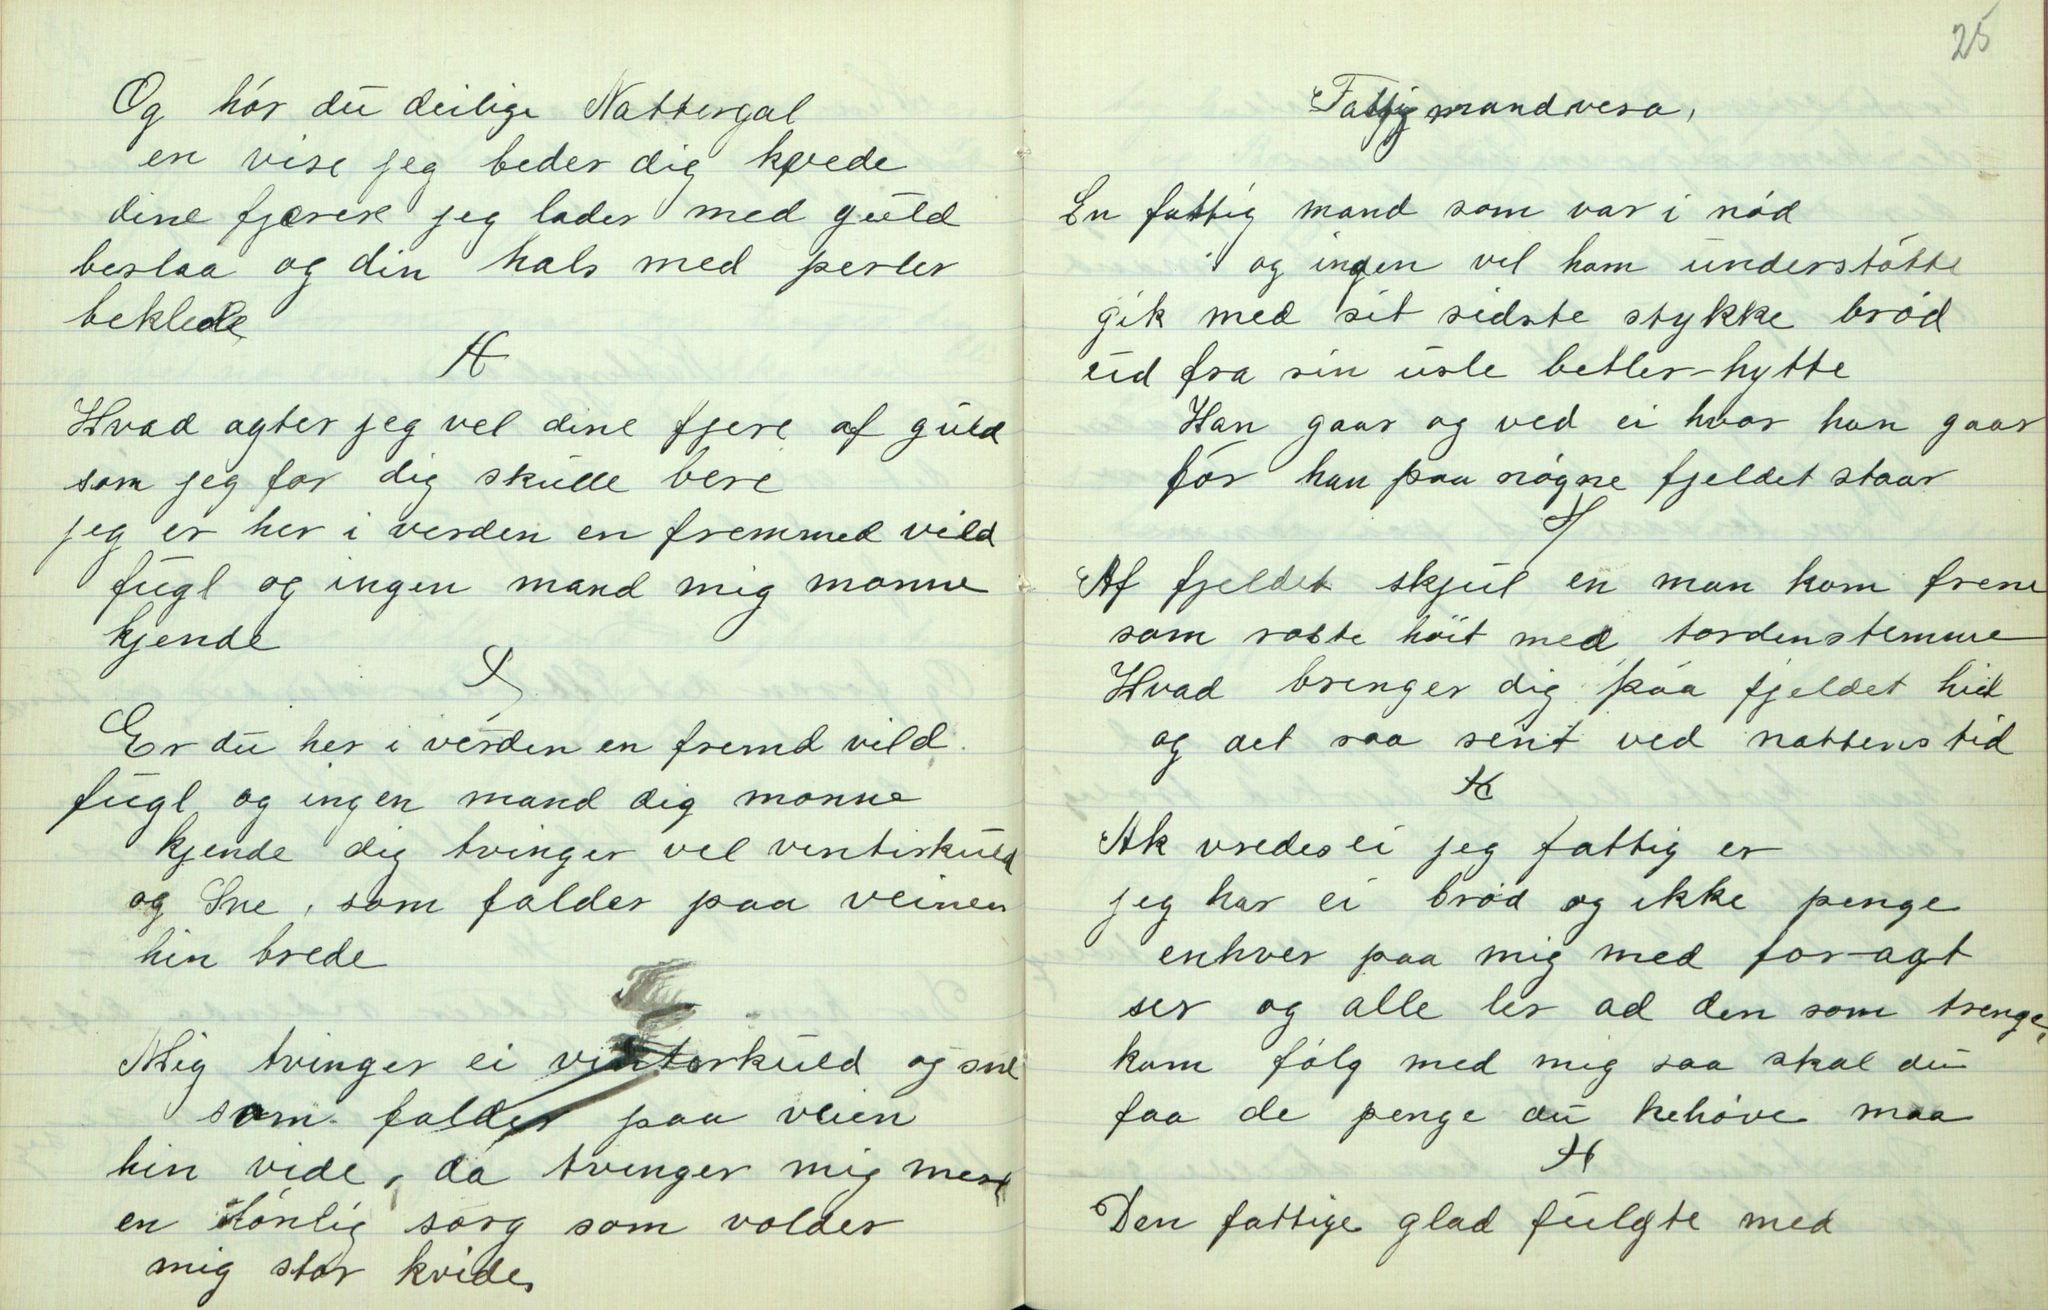 Og hór du deilige Nattergal
en vise jeg beder dig kvede
dine fjærere jeg lader med guld
beslaa og din hals med perler
beklede
Hvad agter jeg vel dine fjere af guld
som jeg for dig skulle bere
jeg er her i verden en fremmed vild
fugl og ingen mand mig monne
kjende
Er du her i verden en fremd vild
fugl og ingen mand dig monne
kjende dig tvinger vel vintirkuld
og Sne, som falder paa veinen
hin brede
Mig tvinger ei vinterkuld og sne
som falder paa veien
hin vide, da tvinger mig mere
en lónlig sorg som volder
mig stor kvide
25
Fattigmandvesa,
En fattig mand som var i nód
og ingen vel ham understótte
gik med sit sidste stykke bród
ud fra sin usle betler-hytte
Han gaar og ved ei hvor han gaar
fór han paa nógne fjeldet staar
Af fjeldet skjul en man kom frem
som rabte hóit med tordenstemme
Hvad bringer dig paa fjeldet hid
og det saa sent ved nattens tid
Ak vredes ei jeg fattig er
jeg har ei bród og ikke penge
enhver paa mig med for-agt
ser og alle ler ad den som trenge,
kom fólg med mig saa skal du
faa de penge du behóve maa
Den fattige glad fulgte med